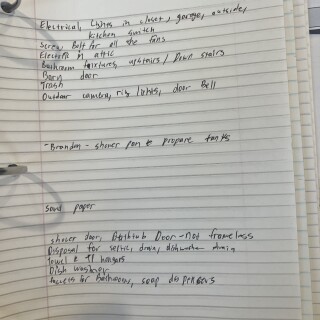 Electrical, Lights in closet, garage, outside,
kitchen switch
Screw Belt for all the fans
Electric in attic
Bathroom fixtures, upstairs / Down stairs
Barn door
Trash
Outdoor camera, rig lights, door Bell
- Brandon - shower pan & propane tanks
sand paper
shower door, Bathtub Door - not frameless
Disposal for service, drain, dishwasher drain
Towel & TP hangers
Dish washer
faucets for Bathrooms, soap dispensers